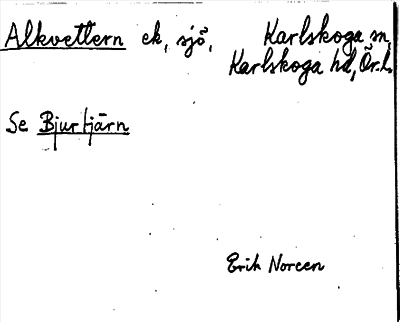 Alkvettern ek, sjö, Karlskoga sn,
Karlskoga hd, Ör.l.
Se Bjurtjärn
Erik Noreen